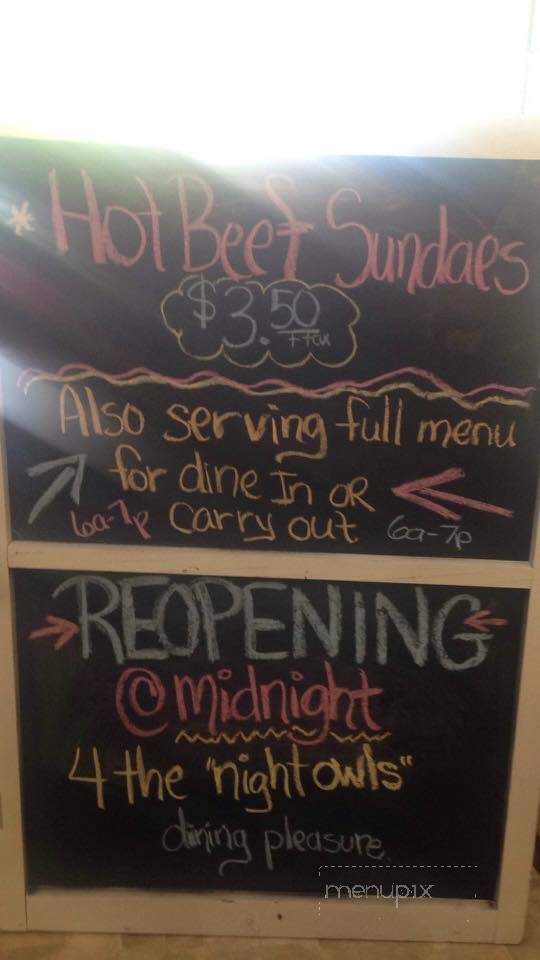 * Hot Beef Sundaes
$3.50
+ tax
Also serving full menu
for dine In OR
6a-7p carry out 6a-7p
REOPENING
@midnight
4 the "night owls"
dining pleasure
menupix